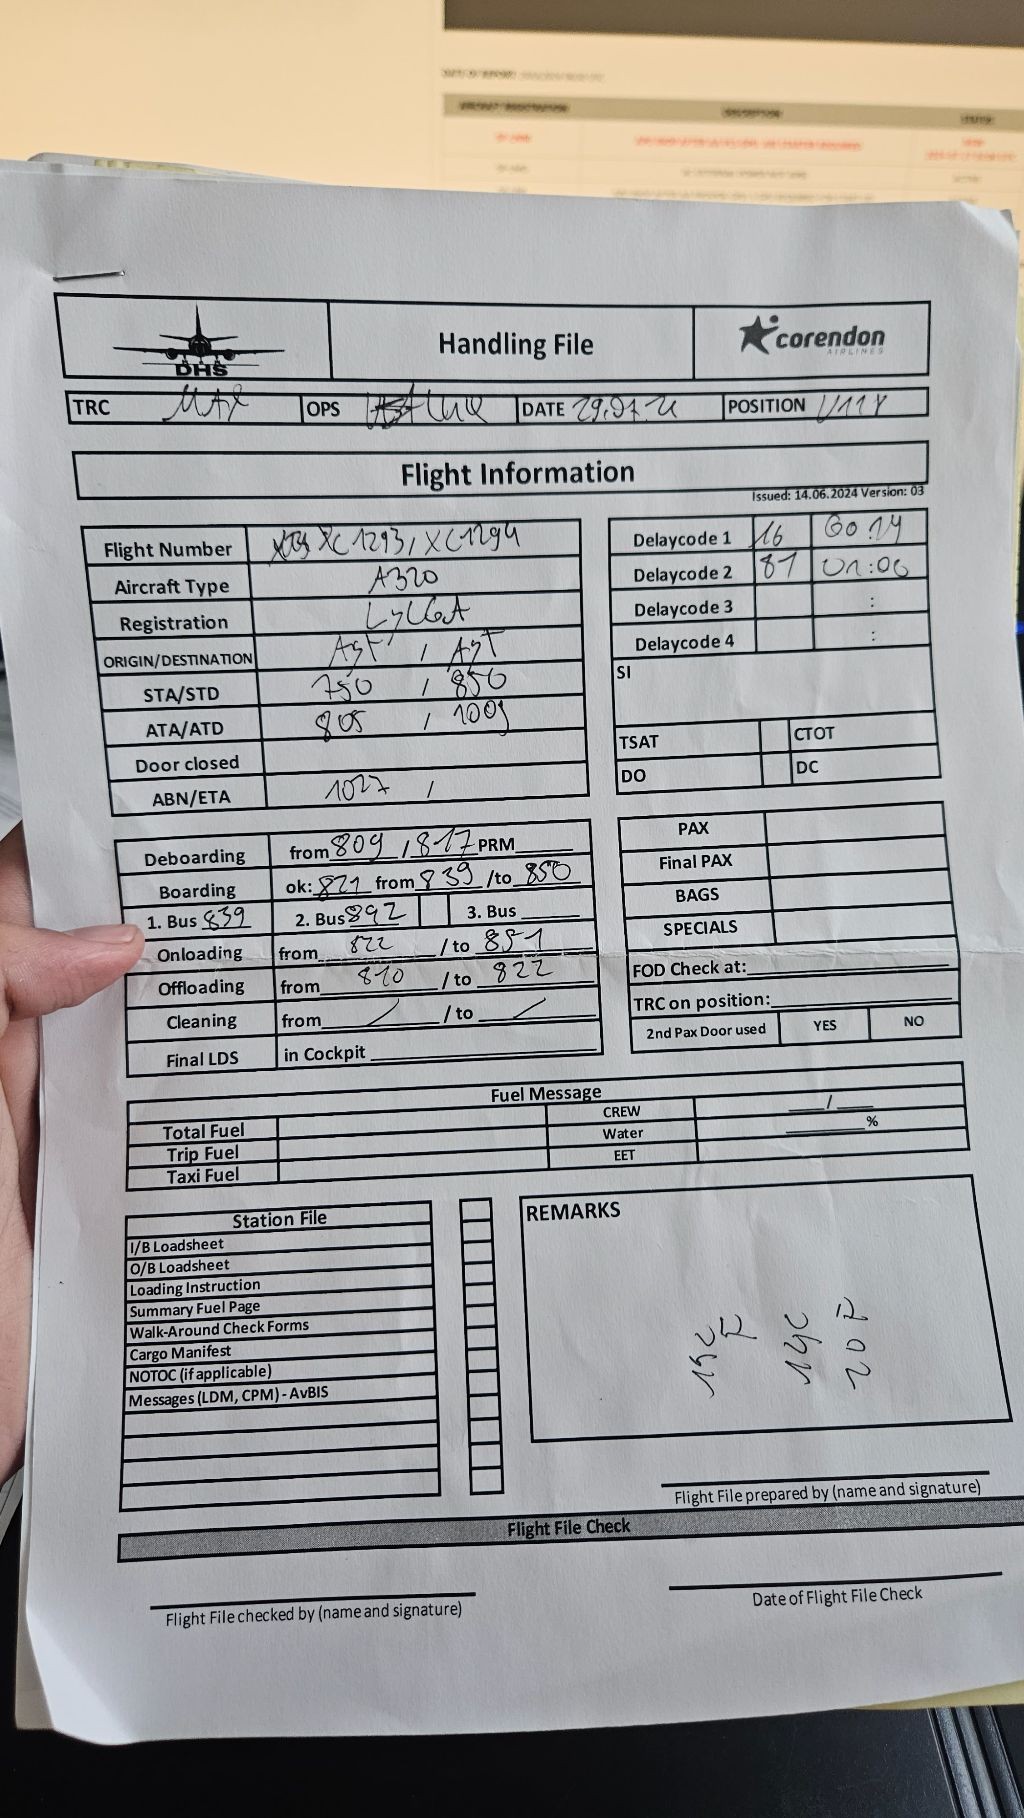 DHS
Handling File
corendon
AIRLINES
TRC MAX OPS DATE 29.07.24 POSITION V117
Flight Information
Issued: 14.06.2024 Version: 03
Flight Number XC1293 / XC1294
Aircraft Type A320
Registration
ORIGIN/DESTINATION AYT / AYT
STA/STD 750 / 850
ATA/ATD 805 / 1009
Door closed
ABN/ETA 1027 /
Delaycode 1 16 00:14
Delaycode 2 81 01:00
Delaycode 3 :
Delaycode 4 :
SI
TSAT CTOT
DO DC
Deboarding from 809 / 817 PRM
Boarding ok: 821 from 839 /to 850
1. Bus 839 2. Bus 842 3. Bus
Onloading from 822 / to 851
Offloading from 810 / to 822
Cleaning from / / to /
Final LDS in Cockpit
PAX
Final PAX
BAGS
SPECIALS
FOD Check at:
TRC on position:
2nd Pax Door used YES NO
Fuel Message
Total Fuel CREW /
Trip Fuel Water %
Taxi Fuel EET
Station File
I/B Loadsheet
O/B Loadsheet
Loading Instruction
Summary Fuel Page
Walk-Around Check Forms
Cargo Manifest
NOTOC (if applicable)
Messages (LDM, CPM) - AvBIS
REMARKS
19C
F
19C
20 F
Flight File prepared by (name and signature)
Flight File Check
Flight File checked by (name and signature)
Date of Flight File Check